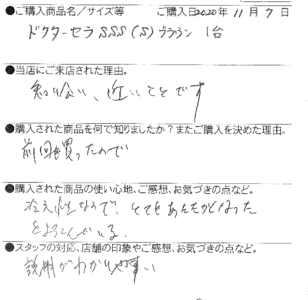 ●ご購入商品名／サイズ等　ご購入日2020年 11月 7日
ドクターセラ SSS (S) ブラウン 1台
●当店にご来店された理由。
知り合い、近いことです
●購入された商品を何で知りましたか？またご購入を決めた理由。
前回も買ったので
●購入された商品の使い心地、ご感想、お気づきの点など。
冷え性なので、とてもあたたかくなった
とよろこんでいる.
●スタッフの対応、店舗の印象やご感想、お気づきの点など。
説明がわかりやすい